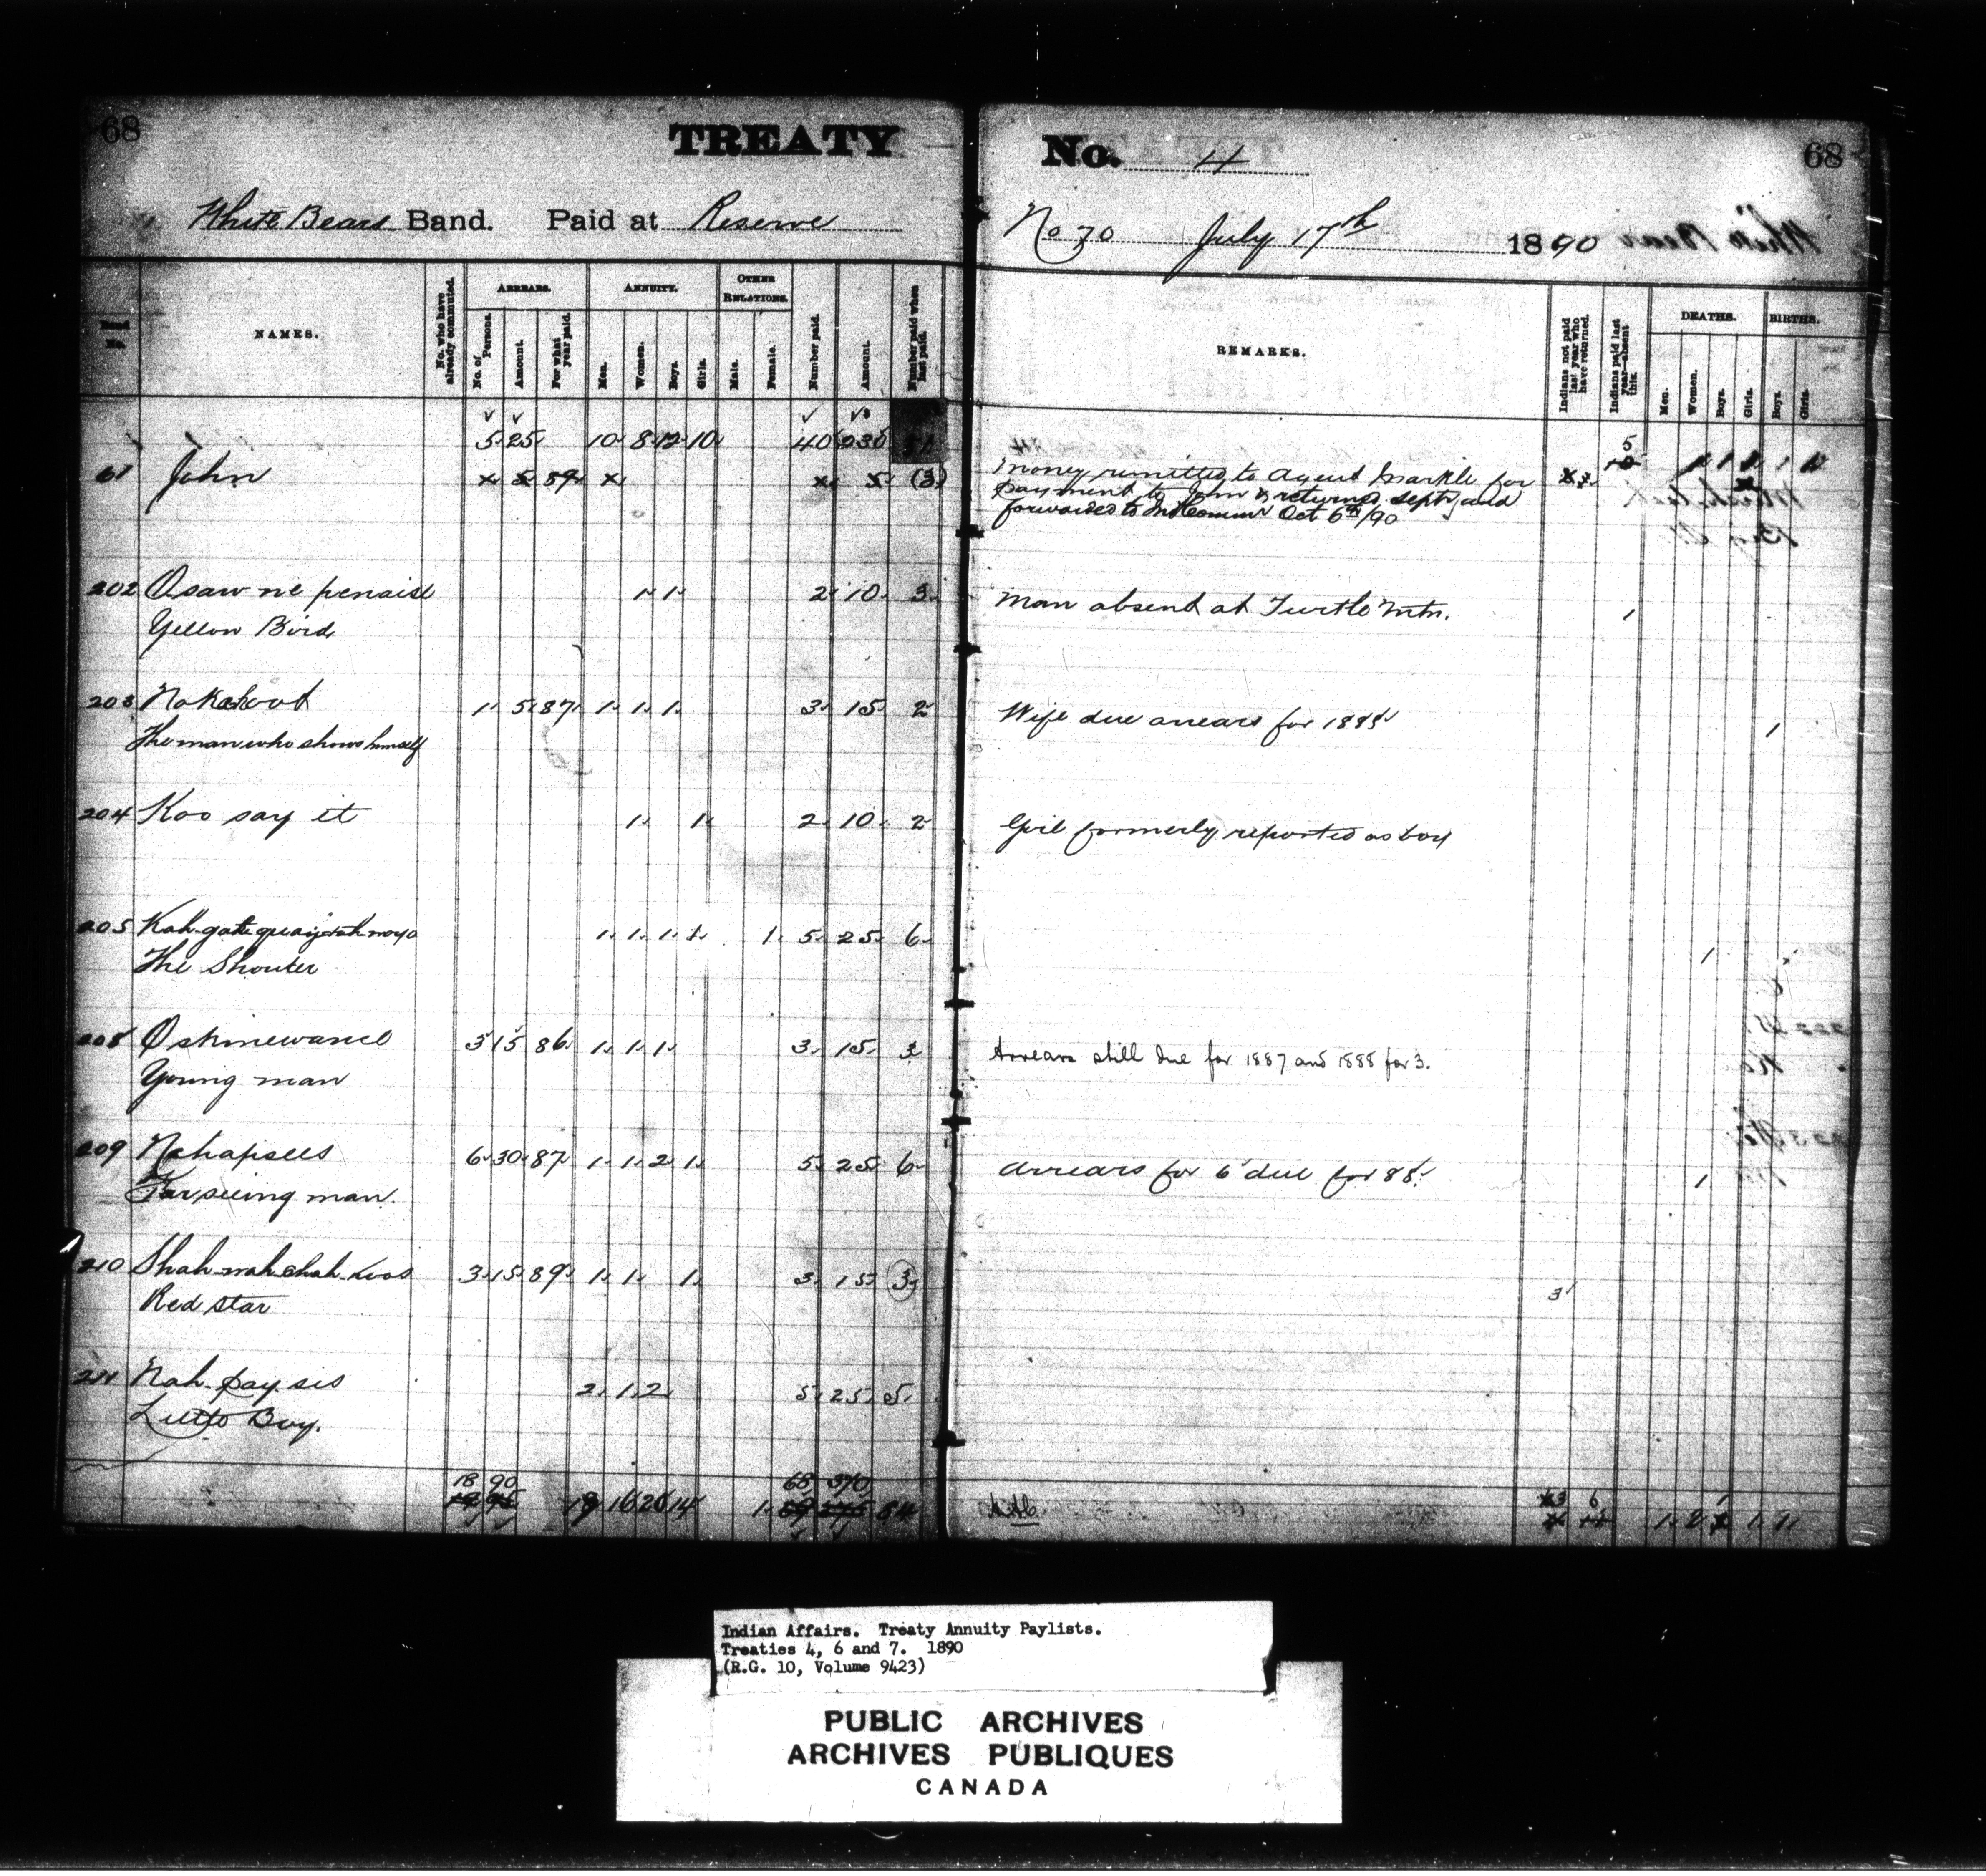 68
TREATY No. 4
68
White Bears Band. Paid at Reserve
No 70 July 17th 1890
Band No.
NAMES.
No. who have already commuted.
ARREARS.
No. of Persons.
Amount.
For what year paid.
ANNUITY.
Men.
Women.
Boys.
Girls.
OTHER RELATIONS.
Male.
Female.
Number paid.
Amount.
Number paid when last paid.
REMARKS.
Indians not paid last year who have returned.
Indians paid last year—absent this.
DEATHS.
Men.
Women.
Boys.
Girls.
BIRTHS.
Boys.
Girls.
5 25 10 8 12 10 40 230 51
John 89 5 (3)
money remitted to Agent Markle for
payment to him & returned Sept and
forwarded to Ind Commr Oct 6th/90
202 Osaw ne penaise 1 1 2 10 3 Man absent at Turtle Mtn. 1
Yellow Bird
203 Nokahoot 1 5 87 1 1 1 3 15 2 Wife due arrears for 1888 1
The man who shows himself
204 Koo say it 1 1 2 10 2 Girl formerly reported as boy
205 1 1 1 1 1 5 25 6 1
The Shouter
208 Oskinewance 3 15 86 1 1 1 3 15 3 Arrears still due for 1887 and 1888 for 3.
Young man
209 Nahapsees 6 30 87 1 1 2 1 5 25 6 Arrears for 6 due for 88 1
Far seeing man.
210 3 15 89 1 1 1 3 15 3 3
Red Star
211 Nah-pay sis 2 1 2 5 25 5
Little Boy.
18 90 68 370
19 95 19 16 20 14 1 69 375 84
Indian Affairs. Treaty Annuity Paylists.
Treaties 4, 6 and 7. 1890
(R.G. 10, Volume 9423)
PUBLIC ARCHIVES
ARCHIVES PUBLIQUES
CANADA